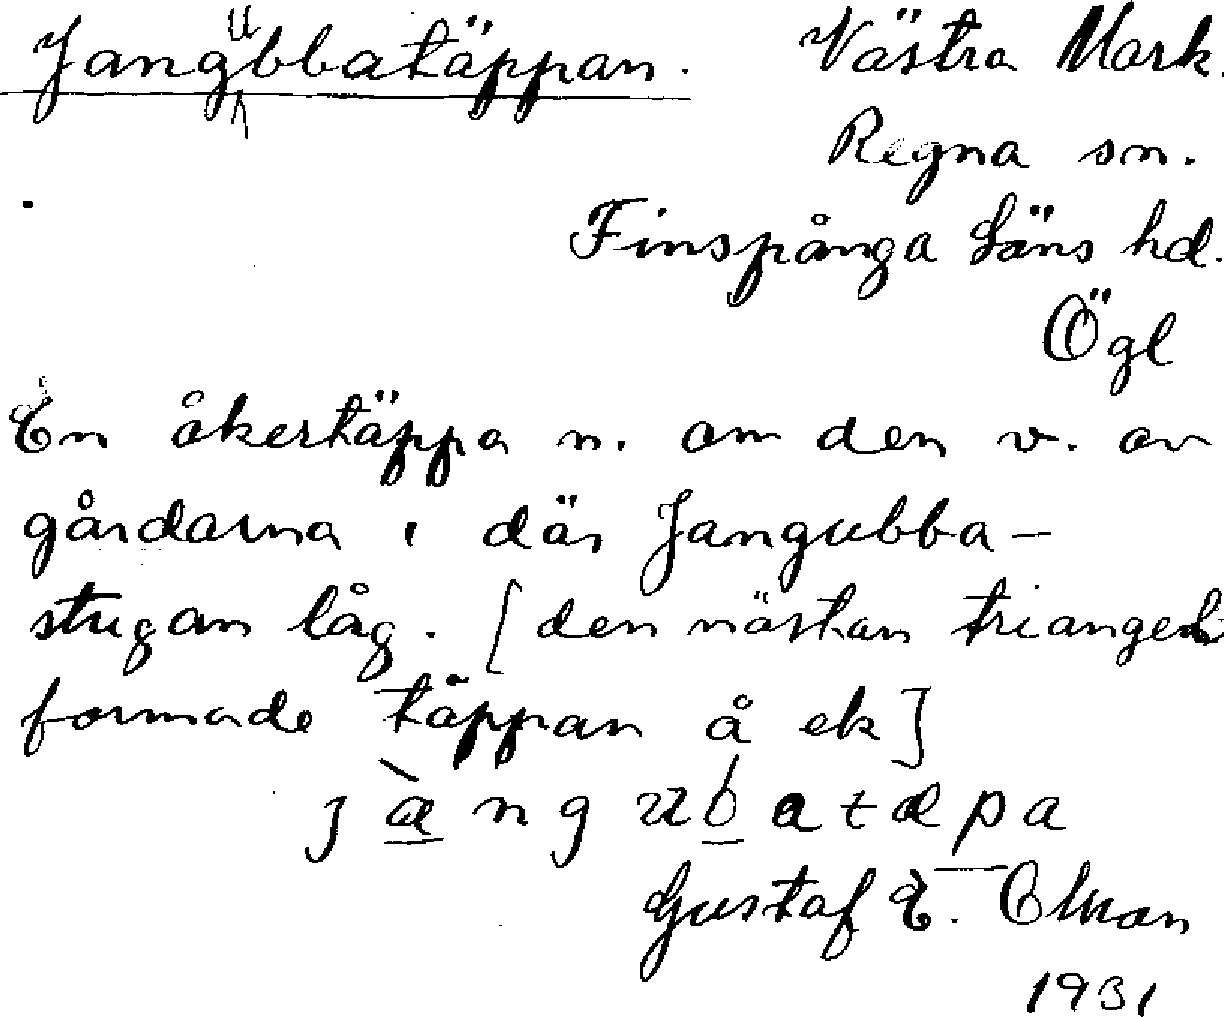 Jangubbatäppan. Västra Mark.
Regna sn.
Finspånga Läns hd.
Ögl
En åkertäppa n. om den v. av
gårdarna, där Jangubba-
stugan låg. [den nästan triangel
formade täppan å ek]
Gustaf E.
1931